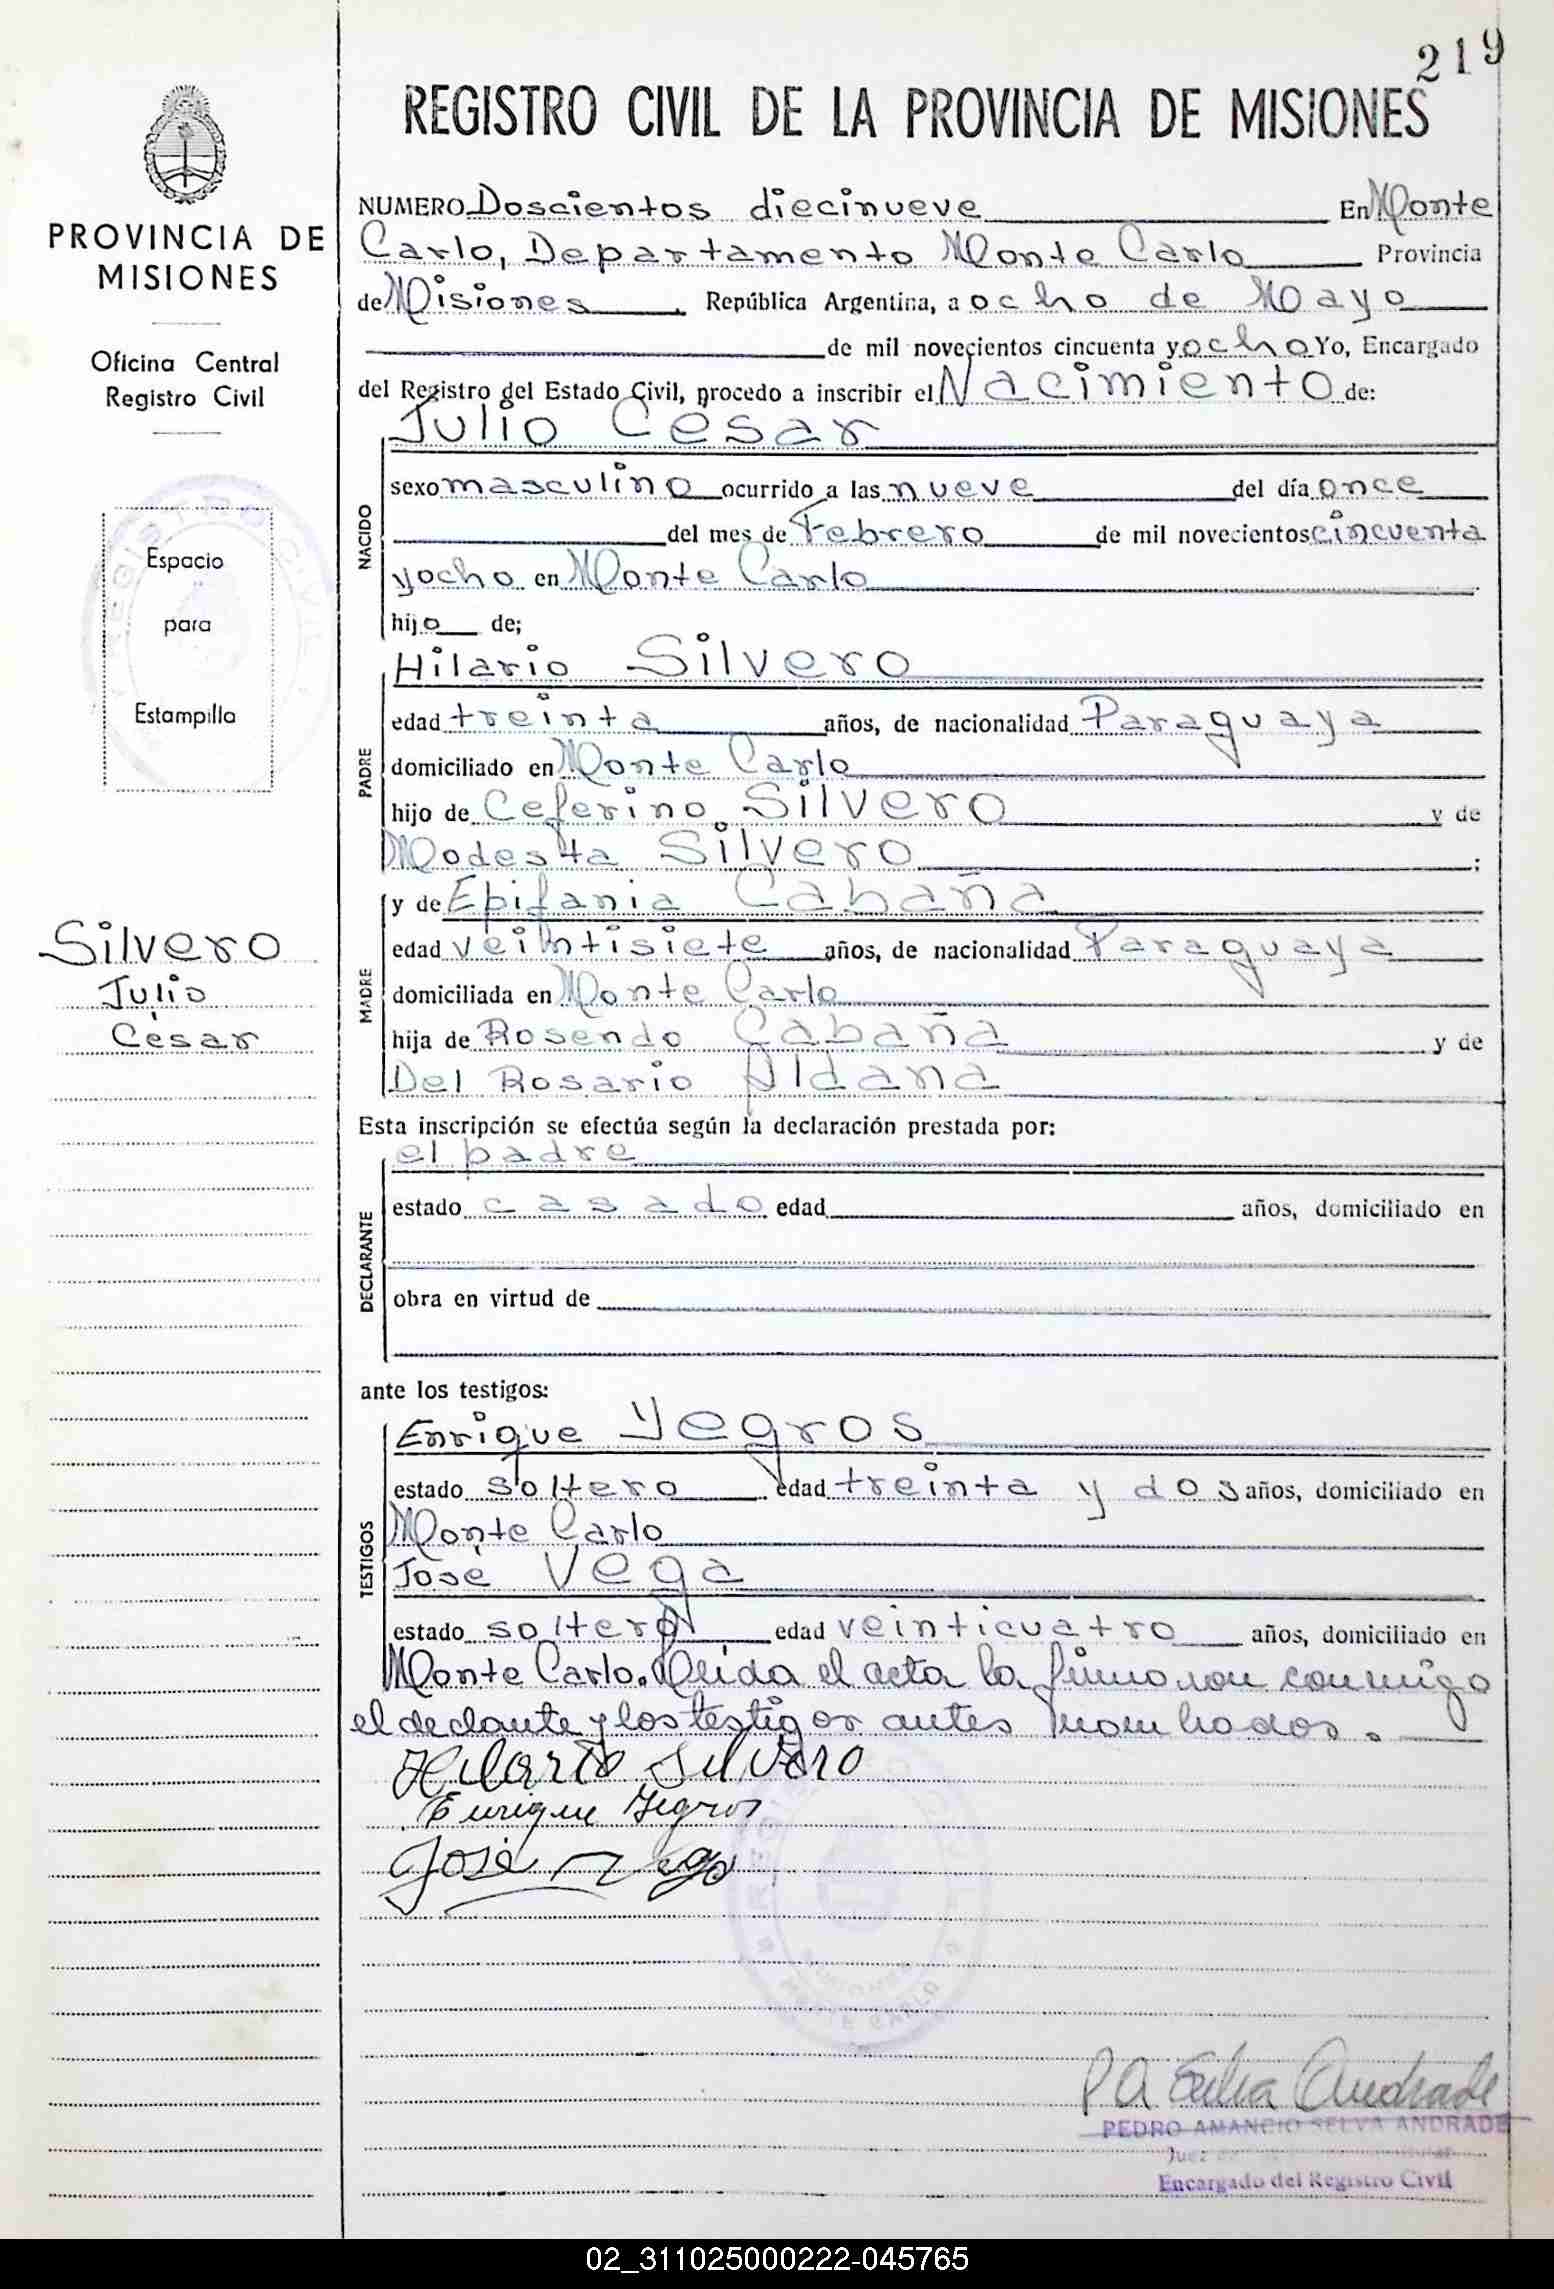 219
REGISTRO CIVIL DE LA PROVINCIA DE MISIONES
PROVINCIA DE
MISIONES
Oficina Central
Registro Civil
Espacio
para
Estampilla
Silvero
Julio
César
NUMERO Doscientos diecinueve En Monte
Carlo, Departamento Monte Carlo Provincia
de Misiones República Argentina, a ocho de Mayo
de mil novecientos cincuenta y ocho Yo, Encargado
del Registro del Estado Civil, procedo a inscribir el Nacimiento de:
Julio Cesar
NACIDO
sexo masculino ocurrido a las nueve del día once
del mes de Febrero de mil novecientos cincuenta
y ocho en Monte Carlo
hijo de;
PADRE
Hilario Silvero
edad treinta años, de nacionalidad Paraguaya
domiciliado en Monte Carlo
hijo de Ceferino Silvero y de
Modesta Silvero ;
MADRE
y de Epifania Cabaña
edad veintisiete años, de nacionalidad Paraguaya
domiciliada en Monte Carlo
hija de Rosendo Cabaña y de
Del Rosario Aldana
Esta inscripción se efectúa según la declaración prestada por:
DECLARANTE
el padre
estado casado edad años, domiciliado en
obra en virtud de
ante los testigos:
TESTIGOS
Enrique Yegros
estado soltero edad treinta y dos años, domiciliado en
Monte Carlo
José Vega
estado soltero edad veinticuatro años, domiciliado en
Monte Carlo. Leida el acta la firmaron conmigo
el declante y los testigos antes nombrados.
Hilario Silvero
Enrique Yegros
José Vega
REGISTRO CIVIL
MISIONES
MONTE CARLO
P A Selva Andrade
PEDRO AMANCIO SELVA ANDRADE
Juez
Encargado del Registro Civil
02_311025000222-045765